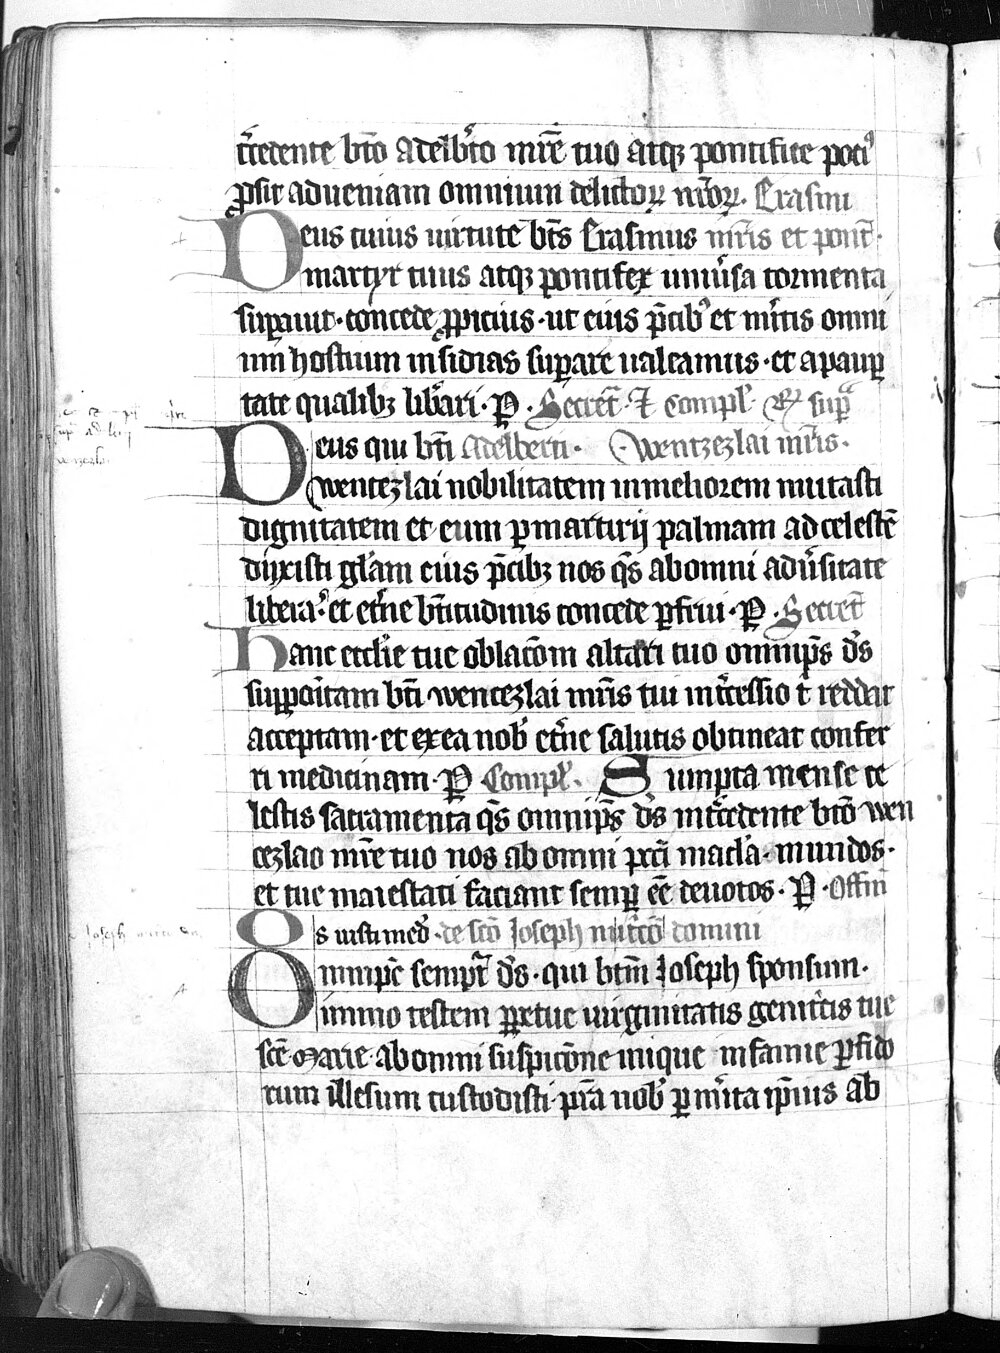 t̾cedente bt̄o Adelb̾to mr̄e tuo atqꝫ pontifice pociꝰ
ꝓsit ad ueniam omnium delictoꝝ nr̄oꝝ. Erasmi
Deus cuius uirtute bt̄s Erasmus mr̄is et pont̄.
martyr tuus atqꝫ pontifex uniu̾sa tormenta
suꝑauit · concede ꝓpicius · ut eius p̄cibꝰ et mr̾itis omni
um hostium insidias suꝑare ualeamus · et a pauꝑ
tate qualibꝫ lib̾ari · P · Secret̄ · ⁊ compl̾
Deus qui bt̄i Adelberti · Wentzezlai mr̄is ·
wentezlai nobilitatem in meliorem mutasti
dignitatem et eum ꝑ martirij palmam ad celestē
duxisti gl̄am eius p̄cibꝫ nos qs̄ ab omni adu̾sitate
libera · et et̾ne bt̄itudinis concede ꝑfrui · P · Secret̄
Hanc eccl̄ie tue oblac̄om altari tuo omnip̄s ds̄
suꝑpoītam bt̄i wencezlai mr̄is tui int̾cessio t̄ reddat
acceptam · et ex ea nob̾ et̾ne salutis obtineat confer
ri medicinam · P Compl̾ · Sumpta mense ce
lestis sacramenta qs̄ omnip̄s ds̄ int̾cedente bt̄o wen
cezlao mr̄e tuo nos ab omni pcc̄i macl̄a · mundos ·
et tue maiestati faciant semꝑ ēe deuotos · P · Offm̄
Os iusti med̾ · de sc̄o Joseph nut̾c̄o domini
Omnipc̄ sempt̾ ds̄ · qui bt̄m Joseph sponsum ·
immo testem ꝑpetue uirginitatis genit̾cis tue
sc̄e Marie · ab omni suspic̄one inique infamie ꝑfido
rum illesum custodisti · p̄ta nob̾ ꝑ mr̾ita ip̄ius ab